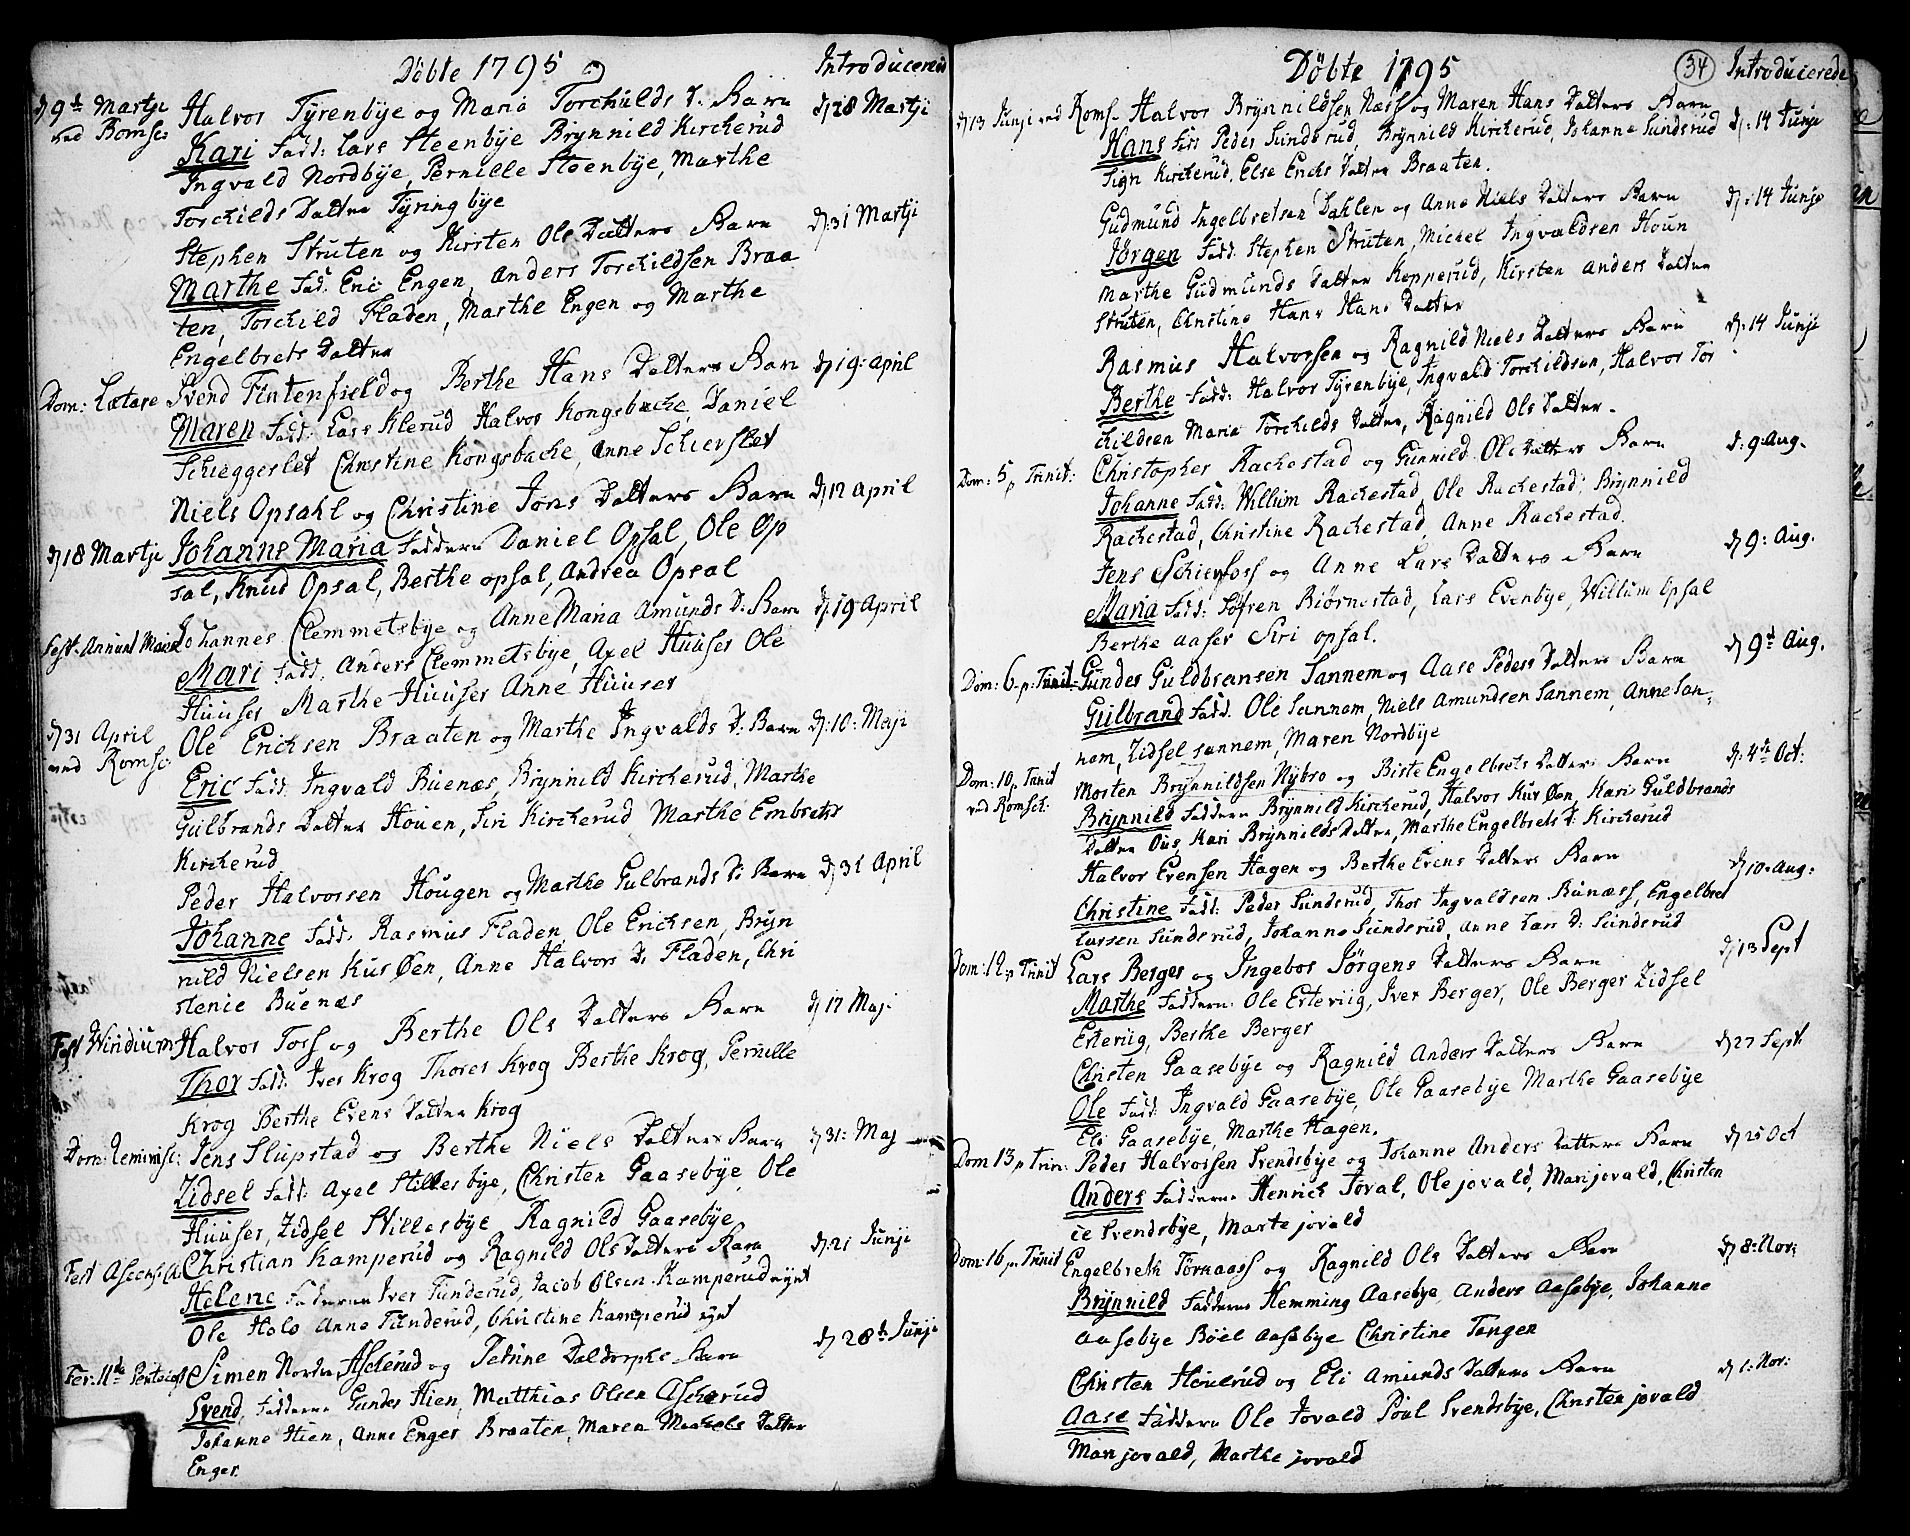 Döbte 1795
Introducerede
d 9de Martji Halvor Tÿrenbÿe og Maria Torchulds D: Barn d 28 Martji
ved Romse Kari Fadd: Lars Steenbÿe Brÿnnild Kircherud
Ingvald Nordbÿe, Pernille Steenbÿe, Marthe
Torchilds Datter Tÿringbÿe
Stephen Struten og Kirsten Ols Datters Barn d: 31 Martji
Marthe Fad: Eric Engen, Anders Torchildsen Braa
ten, Torchild Fladen, Marthe Engen og Marthe
Engelbrets Datter
Dom: Lætare Svend Fintenfield og Berthe Hans Datters Barn d 19: April
Maren Fadd: Lars Klerud Halvor Kongsbache Daniel
Schieggerslet Christine Kongsbache, Anne Schierslet
Niels Opsahl og Christine Jons Datters Barn d 12 April
d 18 Martji Johanne Maria Faddere Daniel Opsal, Ole Op
sal, Knud Opsal, Berthe opsal, Andrea Opsal
Fest: Annunt Mariæ Johannes Clemmetsbÿe og Anne Maria Amunds D: Barn d 19 April
Mari Fadd: Anders Clemmetsbÿe, Axel Huuser Ole
Huuser Marthe Huuser Anne Huuser
d 31 April Ole Ericksen Braaten og Marthe Ingvalds D: Barn d: 10: Maji
ved Romse Eric Fadd: Ingvald Buenæs, Brÿnnild Kircherud, Marthe
Guilbrands Datter Houen, Siri Kircherud Marthe Embrets
Kircherud
Peder Halvorsen Hougen og Marthe Gulbrands D: Barn d 31 April
Johanne Fadd: Rasmus Fladen Ole Ericksen, Brÿn
nild Nielsen Kusöen, Anne Halvors D: Fladen, Chri
stenie Buenæs
Fest Viridium Halvor Foss og Berthe Ols Datters Barn d 17 Maj.
Thor Fadd: Iver Krog Thores Krog Berthe Krog, Pernille
Krog Berthe Evens Datter Krog
Dom: Reminisc: Jens Slupstad og Berthe Niels Datters Barn d 31: Maj
Zidsel Fadd: Axel Stillesbÿe, Christen Gaasebÿe, Ole
Huuser, Zidsel Stillesbÿe Ragnild Gaasebÿe
Fest Ascens: Christian Kamperud og Ragnild Ols Datters Barn d: 21 Junji
Helene Faddere Iver Tunderud, Jacob Olsen Kamperud
Ole Holo Anne Tunderud, Christine Kamperud
Simen Nordre Ascherud og Petrine Daldorphs Barn d 28de Junji
Svend, Faddere Gunder Hien, Matthias Olsen Ascherud
Johanne Hien, Anne Enger Braaten, Maren Datter
Enger.
Döbte 1795
34
Introducerede
d 13 Junji ved Roms. Halvor Brÿnnildsen Næss og Maren Hans Datters Barn d: 14 Junji
Hans Fad: Peder Sundsrud, Brÿnnild Kircherud, Johanne Sundsrud
Sigri Kircherud, Else Erichs Datter Braaten.
Gudmund Ingelbretsen Dahlen og Anne Niels Datters Barn d: 14 Junji
Jörgen Fadd: Stephen Struten, Michel Ingvaldsen Houn
Marthe Gudmunds Datter Kopperud, Kirsten Anders Datter
Struten, Christine Hans Datter
Rasmus Halvorssen og Ragnild Niels Datters Barn d: 14 Junji
Berthe Fadd: Halvor Tÿrenbÿe, Ingvald Torchildsen, Halvor Tor
childsen Maria Torchilds Datter, Ragnild Ols Datter.
Dom: 5 p Trinit: Christopher Rachestad og Gunnild Ols Datters Barn d: 9 Aug.
Johanne Fadd: Willum Rachestad, Ole Rachestad, Brÿnnild
Rachestad, Christine Rachestad, Anne Rachestad.
Jens Schierfoss og Anne Lars Datters Barn d 9: Aug.
Maria Fadd: Sofren Biörnestad, Lars Evenbÿe, Willum Opsal
Berthe Aaser Siri opsal.
Dom: 6 p: Trinit: Gunder Guldbransen Sannem og Aase Peders Datters Barn d 9de Aug.
Guilbrand Fadd: Ole Sannem, Niels Amundsen Sannem, Anne San-
nem, Zidsel sannem, Maren Nordbÿe
Dom: 10 p Trinit Morten Brÿnnildsen Nÿbro og Birte Engelbrets Datters Barn d: 4de Oct:
ved Romsch: Brÿnnild Faddere Brÿnnild Kircherud, Halvor Kusöen, Kari Guldbrands
Datter Ous, Kari Brÿnnilds Datter, Marthe Engelbrets D: Kircherud
Halvor Evensen Hagen og Berthe Evens Datters Barn d 10: Aug:
Christine Fadd: Peder Sundsrud, Thor Ingvaldsen Bunæss, Engelbret
Larsen Sundsrud, Johanne Sundsrud, Anne Lars D: Sundsrud
Dom: 12 p Trinit Lars Berger og Ingebor Jörgens Datters Barn d 13 Sept
Marthe Faddere: Ole Erteriig, Iver Berger, Ole Berger Zidsel
Erteriig, Berthe Berger
Christen Gaasebÿe og Ragnild Anders Datters Barn d 27 Sept
Ole Fadd: Ingvald Gaasebÿe, Ole Gaasebÿe Marthe Gaasebÿe
Eli Gaasebÿe, Marthe Hagen.
Dom 13 p Trin: Peder Halvorssen Svendsbÿe og Johanne Anders Datters Barn d 25 Oct
Anders Faddere Henrich Joval, Ole jovald, Mari jovald, Christen
ie Svendsbÿe, Marte jovald
Dom: 16 p. Trinit Engelbreth Törnaass og Ragnild Ols Datters Barn d 8: Nov:
Brÿnnild Faddere Hemming Aasebÿe, Anders Aasebÿe, Johanne
Aasebÿe Böel Aasebÿe Christine Tangen
Christen Houerud og Eli Amunds Datters Barn d 1: Nov:
Aase Faddere Ole Jovald Poul Svendsbÿe, Christen jovald
Mari jovald, Marthe jovald